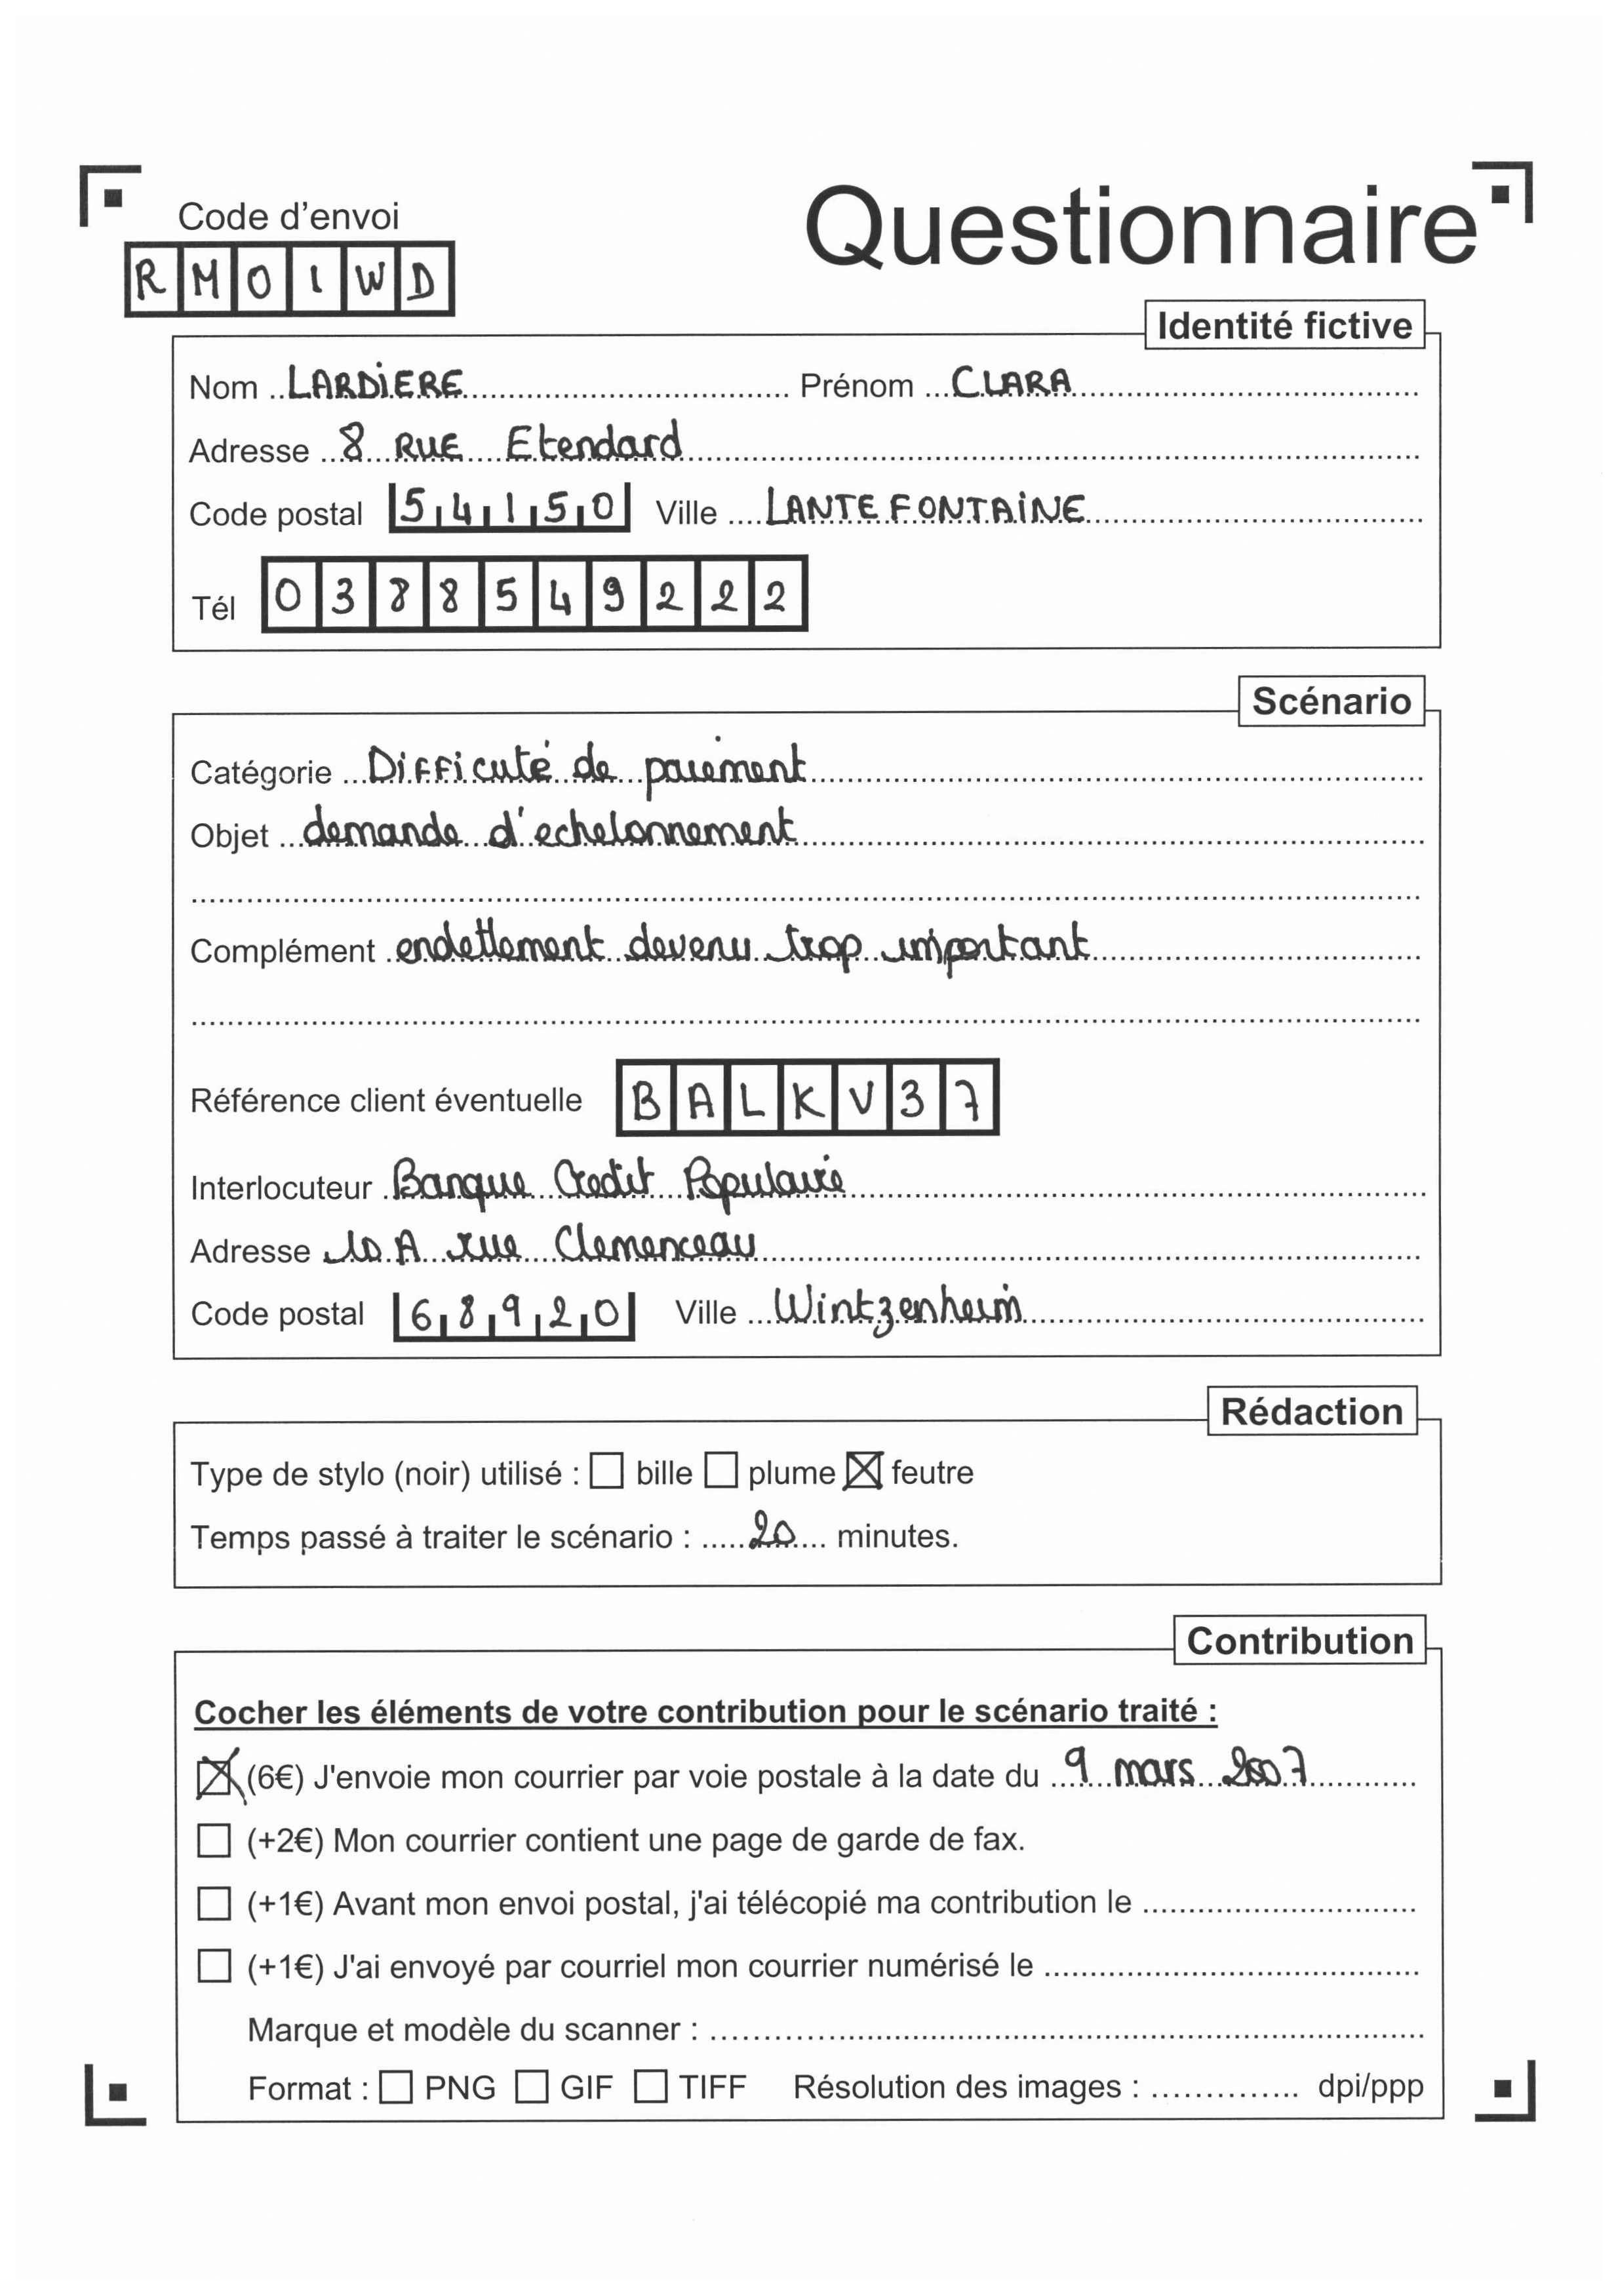 Code d'envoi
Questionnaire
RMOIWD
Identité fictive
Nom LARDIERE Prénom CLARA
Adresse 8 RUE Etendard
Code postal 54150 Ville LANTEFONTAINE
Tél 0388549222
Scénario
Catégorie Difficuté de paiement
Objet demande d'echelonnement
Complément endettement devenu trop important
Référence client éventuelle BALKV37
Interlocuteur Banque Credit Populaire
Adresse 10 A rue Clemenceau
Code postal 68920 Ville Wintzenheim
Rédaction
Type de stylo (noir) utilisé : ☐ bille ☐ plume ☒ feutre
Temps passé à traiter le scénario : 20 minutes.
Contribution
Cocher les éléments de votre contribution pour le scénario traité :
☒ (6€) J'envoie mon courrier par voie postale à la date du 9 mars 2007
☐ (+2€) Mon courrier contient une page de garde de fax.
☐ (+1€) Avant mon envoi postal, j'ai télécopié ma contribution le
☐ (+1€) J'ai envoyé par courriel mon courrier numérisé le
Marque et modèle du scanner :
Format : ☐ PNG ☐ GIF ☐ TIFF Résolution des images : dpi/ppp